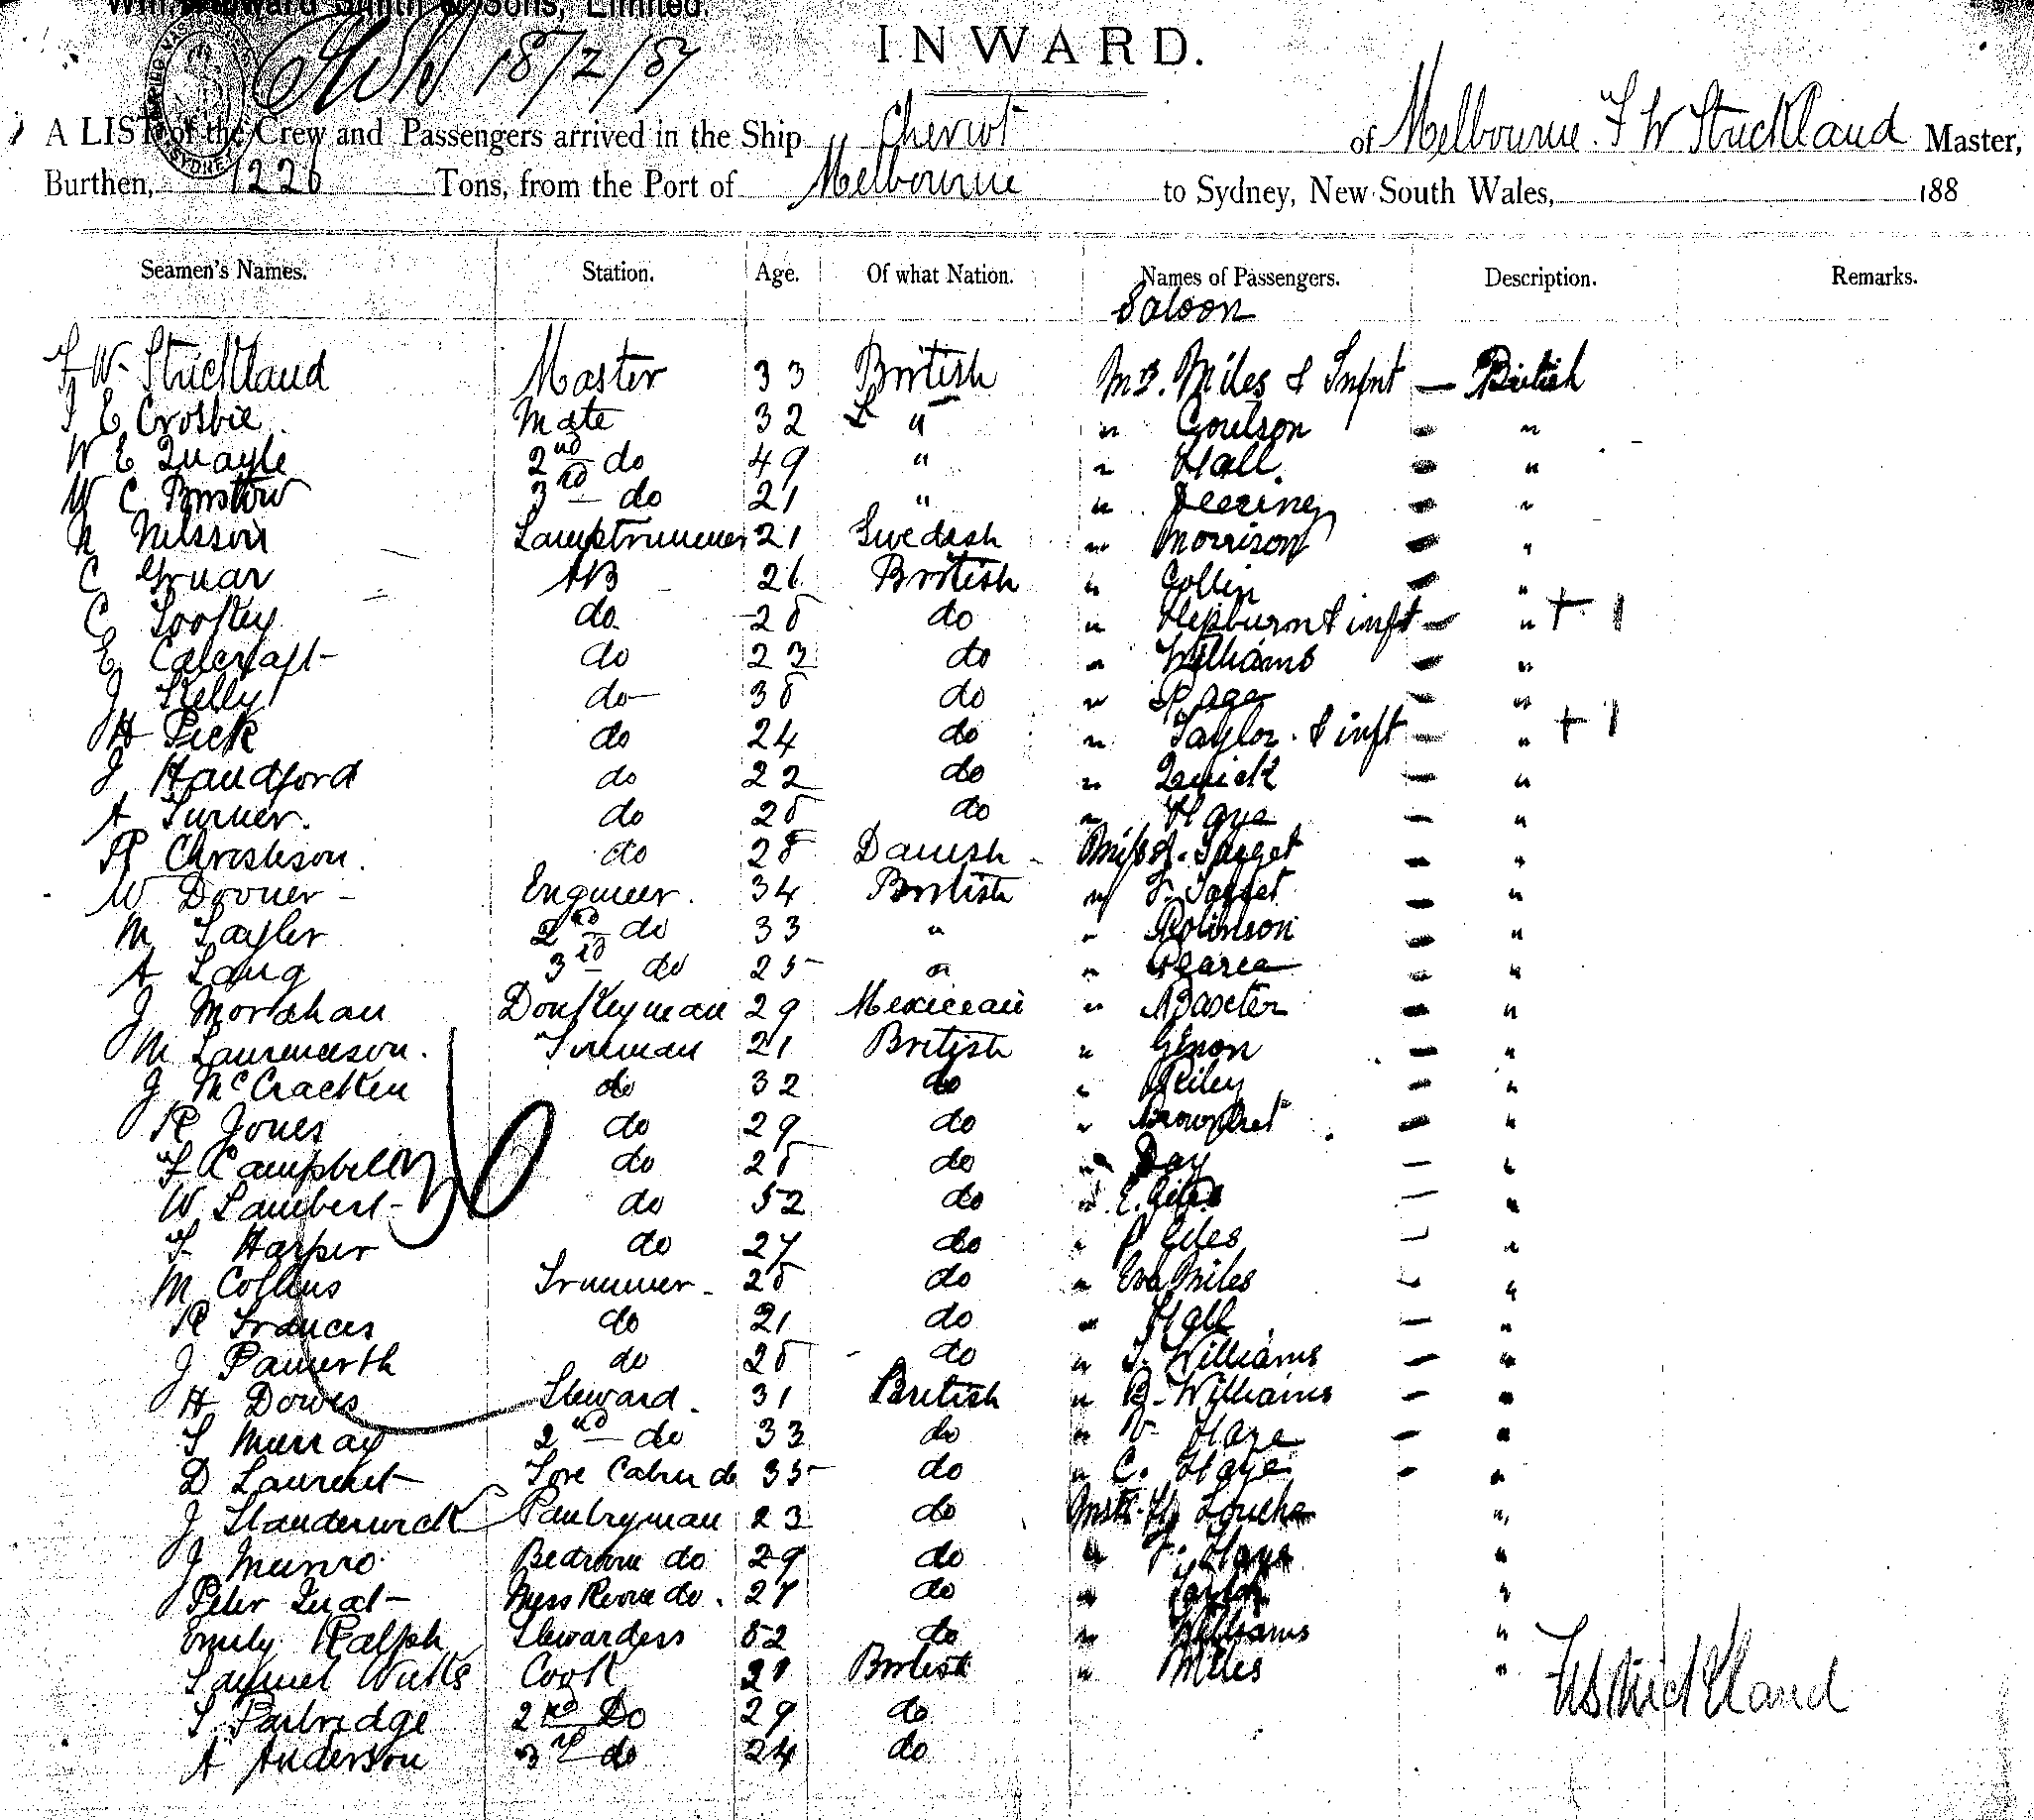 Wm. Howard Smith & Sons, Limited.
18/2/87
INWARD.
A LIST of the Crew and Passengers arrived in the Ship Cheviot of Melbourne. F W Strickland Master,
Burthen, 1226 Tons, from the Port of Melbourne to Sydney, New South Wales, 188
Seamen's Names. Station. Age. Of what Nation. Names of Passengers. Description. Remarks.
Saloon
F W Strickland Master 33 British Mrs. Miles & Infnt — British
E Crosbie Mate 32 " " Coulson — "
W E Quayle 2nd do 49 " " Hall. — "
W C Bristow 3rd do 21 " " —
N Nilsson Lamptrimmer 21 Swedish " Morrison — "
C Gruar AB 26 British " Collin — "
C do 28 do " Hepburn & inft — " + 1
E Calcraft do 23 do " Williams — "
J Kelly do 38 do " Page — "
H Peck do 24 do " Taylor & inft — " + 1
J Handford do 22 do " Quick — "
A Turner. do 28 do " Haye — "
P Christison. do 28 Danish Miss — "
W Dooner Engineer. 34 British " F. — "
M Tayler 2nd do 33 " " Robinson — "
A Lang 3rd do 25 " " Pearce — "
J Monahan Donkeyman 29 Mexiccan " Baxter — "
M Laurenceson. Fireman 21 British " — "
J McCracken do 32 do " Riley — "
R Jones do 29 do " — "
F Campbell do 28 do " Day — "
W Lambert do 52 do " E. Giles — "
F Harper do 27 do " P Giles — "
M Collins Trimmer 28 do " Eva Miles — "
R Frances do 21 do " Hall — "
J do 28 do " T. Williams — "
H Dowes Steward. 31 British " B. Williams — "
S Murray 2nd do 33 do " V. Haye — "
D Laurent Fore Cabin do 35 do " C. Haye — "
J Standerwick Pantryman 23 do Mstr. "
J Munro Bedroom do 29 do " F. Haye "
Peter Mess Room do. 27 do " "
Emily Ralph Stewardess 52 do " Williams "
Samuel Cook 29 British " Miles "
S Partridge 2nd Do 29 do
A Anderson 3rd do 24 do
FW Strickland